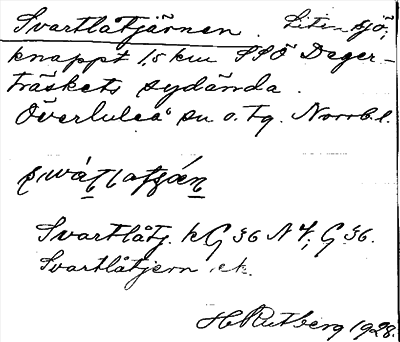 Svartlatjärnen. Liten sjö,
knappt 1,5 km SSÖ Deger-
träskets sydända.
Överluleå sn o. tg. Norrb. l.
Svartlåtj. kG 36 N 4; G 36.
Svartlåtjern ek.
H. Rutberg 1928.